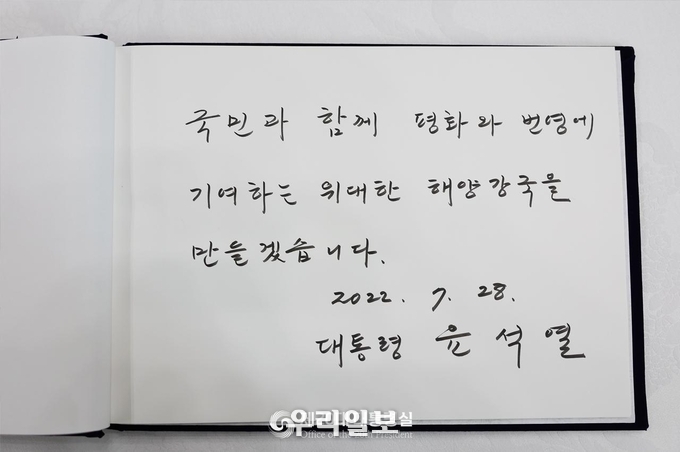 국민과 함께 평화와 번영에
기여하는 위대한 해양강국을
만들겠습니다.
2022. 7. 28.
대통령 윤석열
우리일보
Office of the President